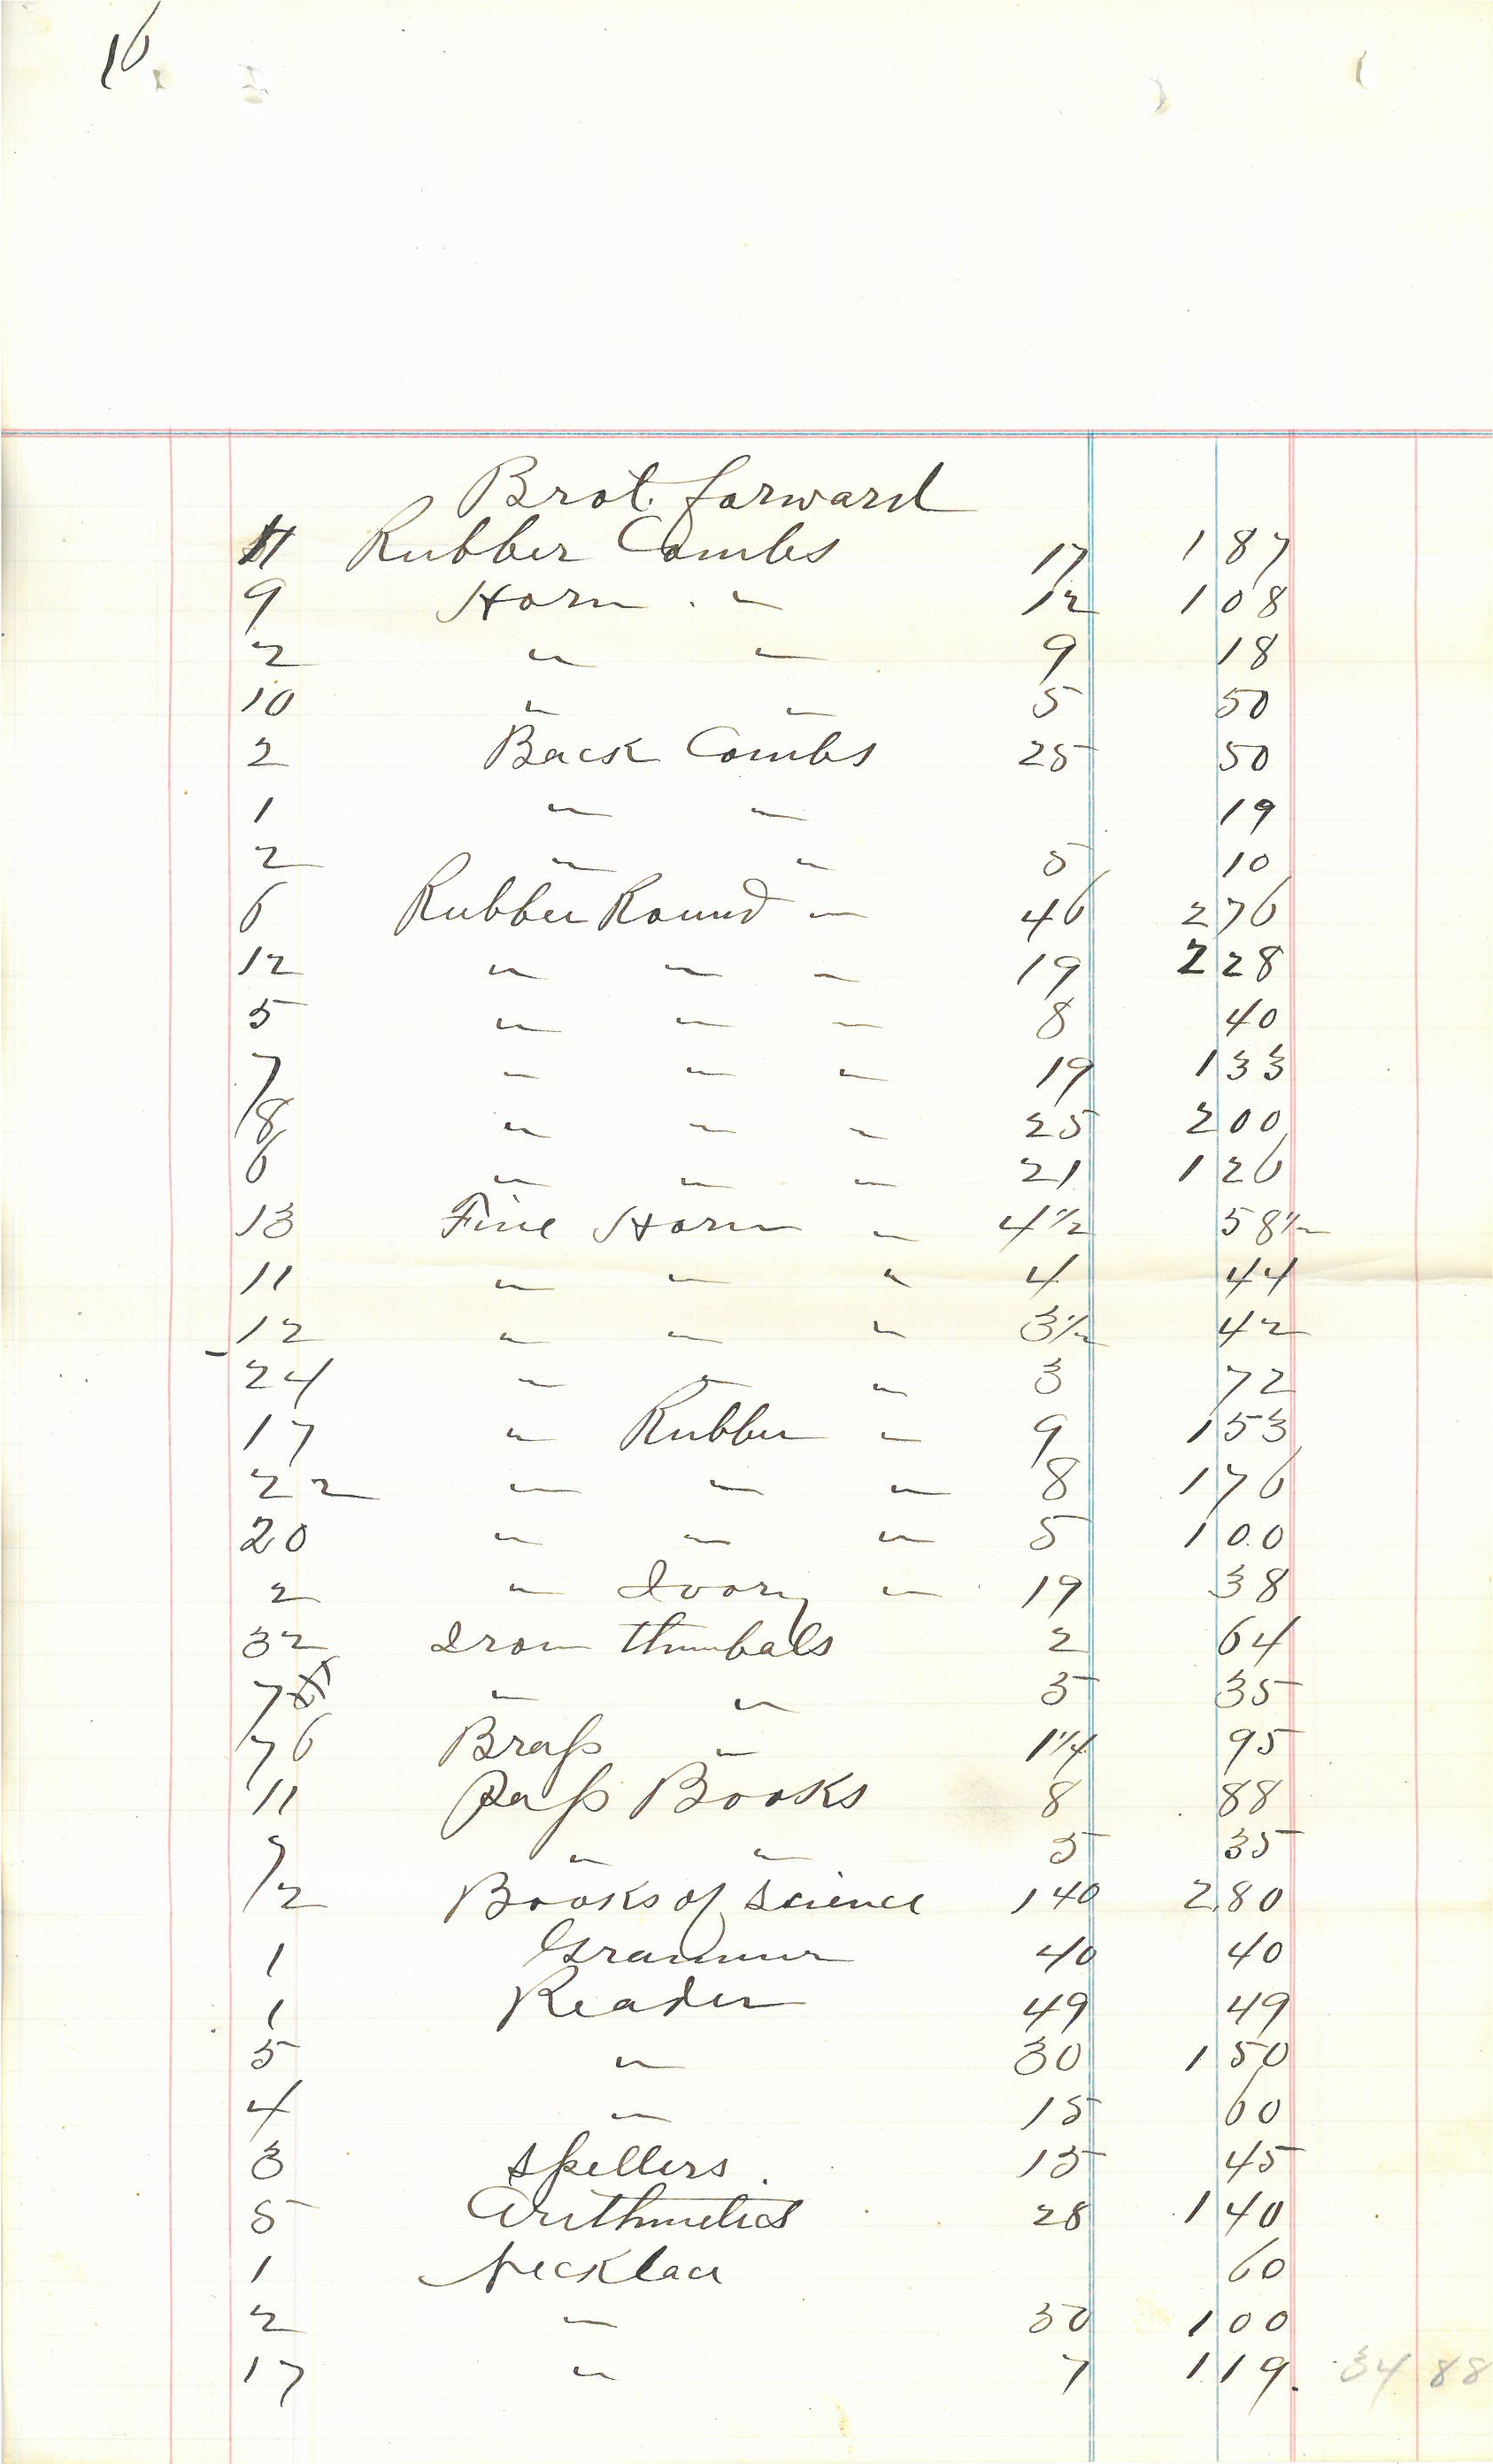 16
Brot. forward
11 Rubber Combs 17 1 87
9 Horn . " 12 1 08
2 " " 9 18
10 " " 5 50
2 Back Combs 25 50
1 " " 19
2 " " 5 10
6 Rubber Round " 46 2 76
12 " " " 19 2 28
5 " " " 8 40
7 " " " 19 1 33
8 " " " 25 2 00
6 " " " 21 1 26
13 Fine Horn " 4½ 58½
11 " " " 4 44
12 " " " 3½ 42
24 " " " 3 72
17 " Rubber " 9 1 53
22 " " " 8 1 76
20 " " " 5 1 00
2 " Ivory " 19 38
32 Iron thimbals 2 64
7 " " 5 35
76 Brass " 1¼ 95
11 Pass Books 8 88
7 " " 5 35
2 Books of Science 140 2 80
1 Grammer 40 40
1 Reader 49 49
5 " 30 1 50
4 " 15 60
3 Spellers. 15 45
5 Arithmetics 28 1 40
1 Necklace 60
2 " 50 1 00
17 " 7 1 19. 34 88